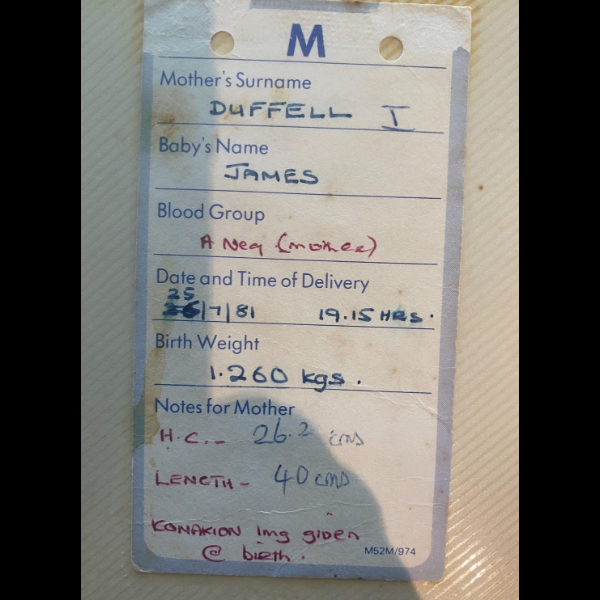 M
Mother's Surname
DUFFELL I
Baby's Name
JAMES
Blood Group
A Neg (mother)
Date and Time of Delivery
25
26/7/81 19.15 HRS.
Birth Weight
1.260 kgs.
Notes for Mother
H.C.- 26.2 cms
LENGTH - 40 cms
KONAKION 1mg given
@ birth.
M52M/974